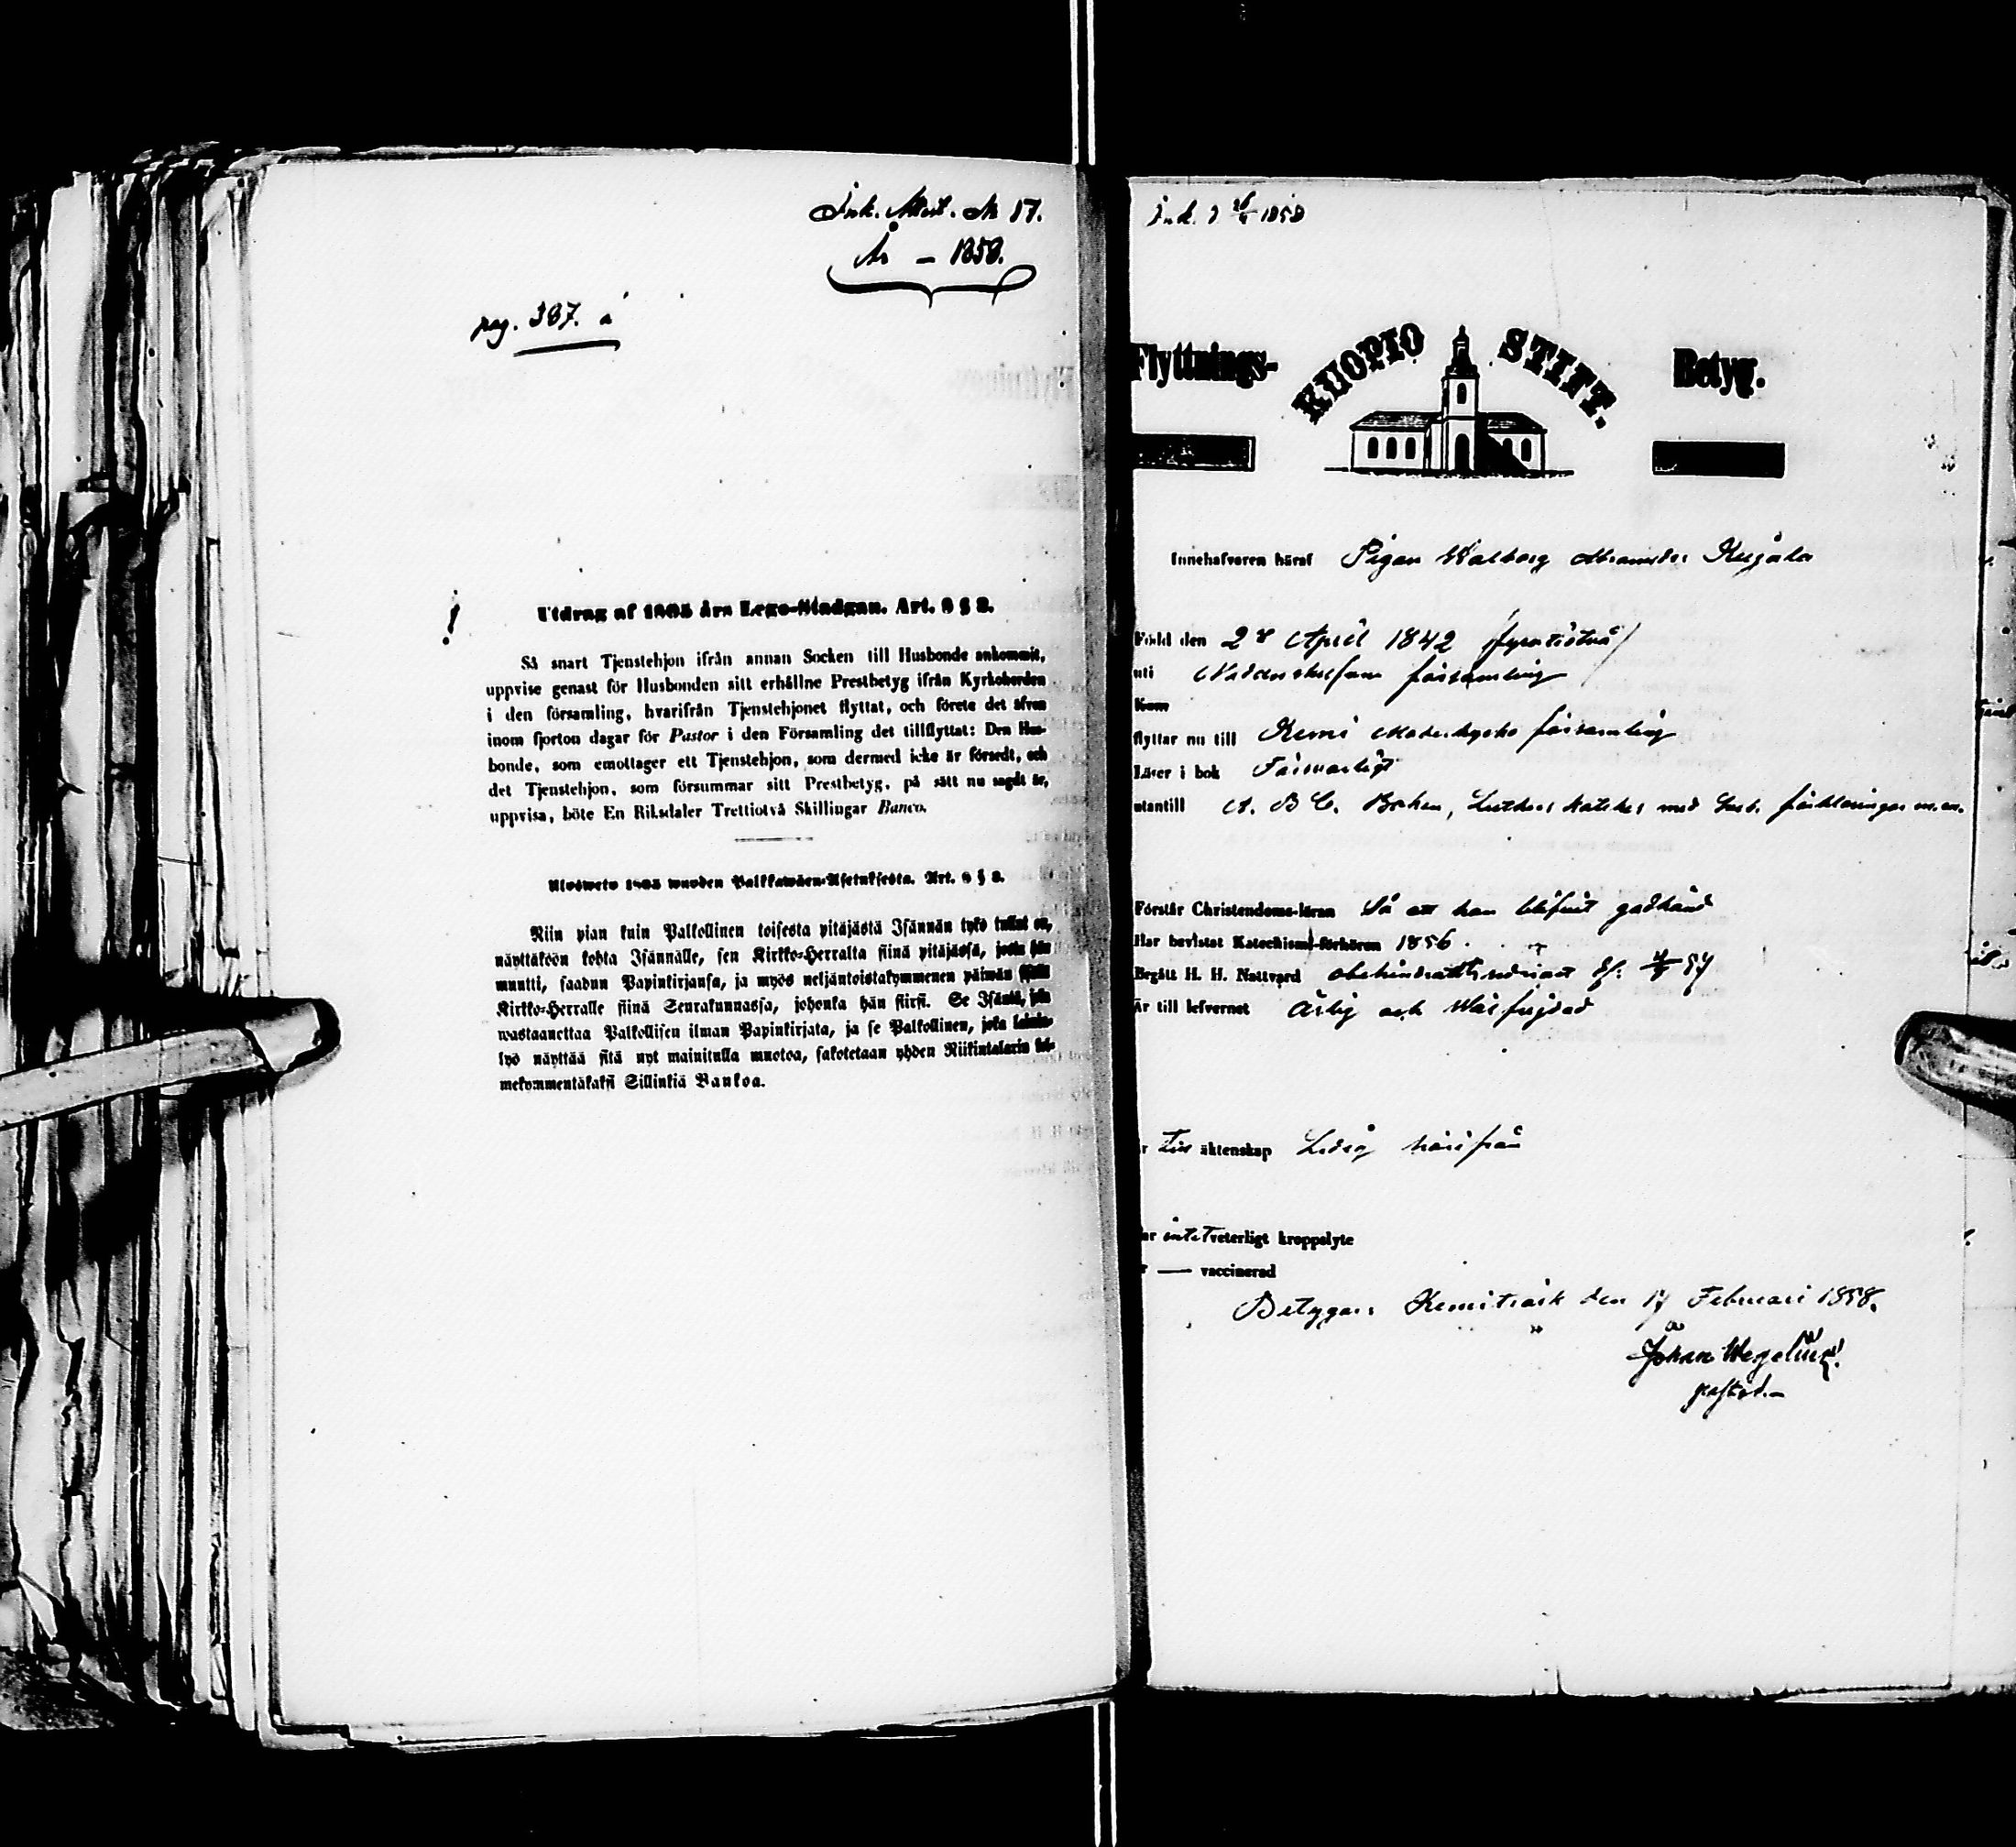 Ink. Att. N 17.
År – 1858.
pag. 387. a
Utdrag af 1805 års Lego-Stadgan. Art. 9 § 2.
Så snart Tjenstehjon ifrån annan Socken till Husbonde ankommit,
uppvise genast för Husbonden sitt erhållne Prestbetyg ifrån Kyrkoherden
i den församling, hvarifrån Tjenstehjonet flyttat, och förete det äfven
inom fjorton dagar för Pastor i den Församling det tillflyttat: Den Hus-
bonde, som emottager ett Tjenstehjon, som dermed icke är försedt, och
det Tjenstehjon, som försummar sitt Prestbetyg, på sätt nu sagdt är,
uppvisa, böte En Riksdaler Trettiotvå Skillingar Banco.
Ulosweto 1805 wuoden Palkkawäen-Asetuksesta. Art. 9 § 2.
Niin pian kuin Palkollinen toisesta pitäjästä Isännän tykö tullut on,
näyttäköön kohta Isännälle, sen Kirkko-Herralta siinä pitäjässä, josta hän
muutti, saadun Papinkirjansa, ja myös neljäntoistakymmenen päiwän sisällä
Kirkko-Herralle siinä Seurakunnassa, johonka hän siirsi. Se Isäntä, joka
wastaanottaa Palkollisen ilman Papinkirjata, ja se Palkollinen, joka laimin-
lyö näyttää sitä nyt mainitulla muotoa, sakotetaan yhden Riikintalarin kol-
mekymmentäkaksi Sillinkiä Bankoa.
Ink. 1858
Flyttnings- KUOPIO STIFT. Betyg.
Innehafvaren häraf Pigan Walborg Abramsdr Kujala
Född den 28 April 1842 /fyratiotvå/
uti församling
Kom
flyttar nu till Kemi Moderkyrko församling
Läser i bok Försvarligt
utantill A. B C. Boken, Luthers Kateches med förklaringar m.m.
Förstår Christendoms-läran Så att hon blifvit godkänd
Har bevistat Katechismi-förhören 1856.
Begått H. H. Nattvard obehindradt sednast d. 57
Är till lefvernet Ärlig och Wälfrejdad
Är till äktenskap Ledig härifrån
Har intet veterligt kroppslyte
Är — vaccinerad
Betygar: Kemiträsk den 17 Februari 1858.
Johan Wegelius
pastor.